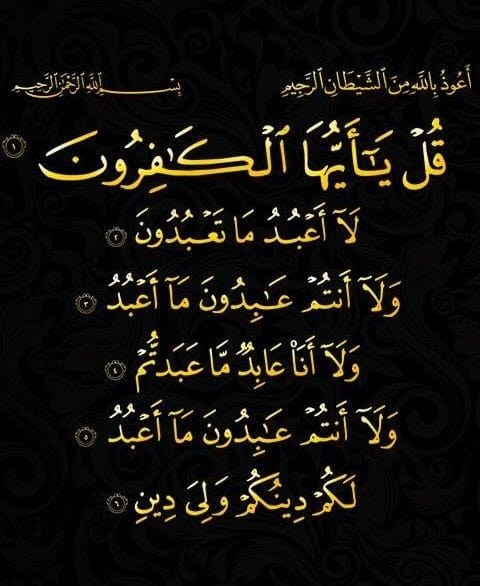 أَعُوذُ بِاللَّهِ مِنَ ٱلشَّيْطَانِ ٱلرَّجِيمِ بِسْمِ ٱللَّهِ ٱلرَّحْمَٰنِ ٱلرَّحِيمِ
قُلْ يَـٰٓأَيُّهَا ٱلْكَـٰفِرُونَ ١
لَآ أَعْبُدُ مَا تَعْبُدُونَ ٢
وَلَآ أَنتُمْ عَـٰبِدُونَ مَآ أَعْبُدُ ٣
وَلَآ أَنَا۠ عَابِدٌ مَّا عَبَدتُّمْ ٤
وَلَآ أَنتُمْ عَـٰبِدُونَ مَآ أَعْبُدُ ٥
لَكُمْ دِينُكُمْ وَلِىَ دِينِ ٦